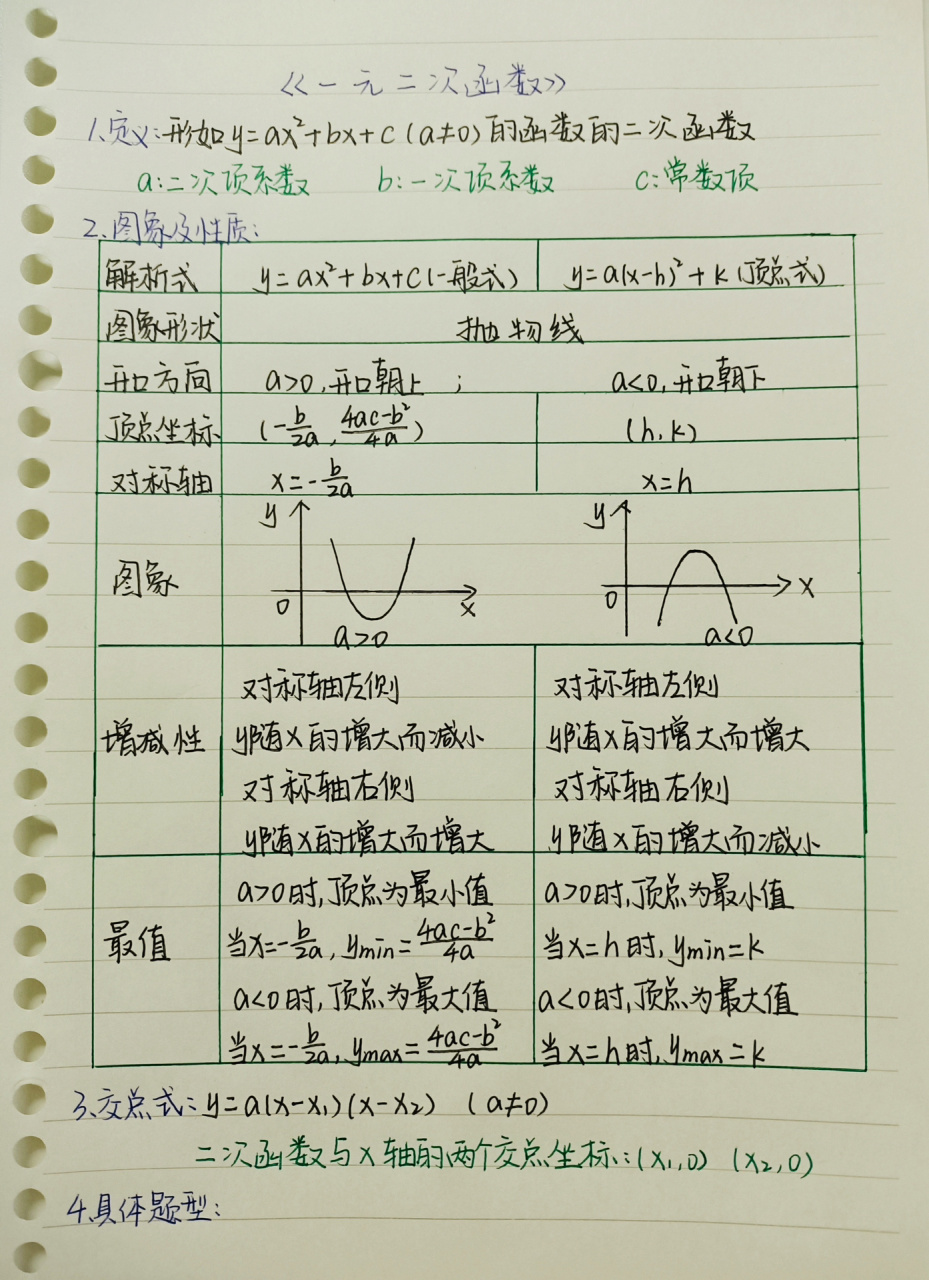 《一元二次函数》
1.定义:形如y=ax²+bx+c(a≠0)的函数的二次函数
a:二次项系数 b:一次项系数 c:常数项
2.图象及性质:
解析式 y=ax²+bx+c(一般式) y=a(x-h)²+k(顶点式)
图象形状 抛物线
开口方向 a>0,开口朝上 ; a<0,开口朝下
顶点坐标 (-b/2a, 4ac-b²/4a) (h,k)
对称轴 x=-b/2a x=h
图象
y
0
x
a>0
y
0
x
a<0
增减性
对称轴左侧
y随x的增大而减小
对称轴右侧
y随x的增大而增大
对称轴左侧
y随x的增大而增大
对称轴右侧
y随x的增大而减小
最值
a>0时,顶点为最小值
当x=-b/2a, ymin=4ac-b²/4a
a<0时,顶点为最大值
当x=-b/2a, ymax=4ac-b²/4a
a>0时,顶点为最小值
当x=h时, ymin=k
a<0时,顶点为最大值
当x=h时, ymax=k
3.交点式:y=a(x-x₁)(x-x₂) (a≠0)
二次函数与x轴的两个交点坐标:(x₁,0) (x₂,0)
4.具体题型: